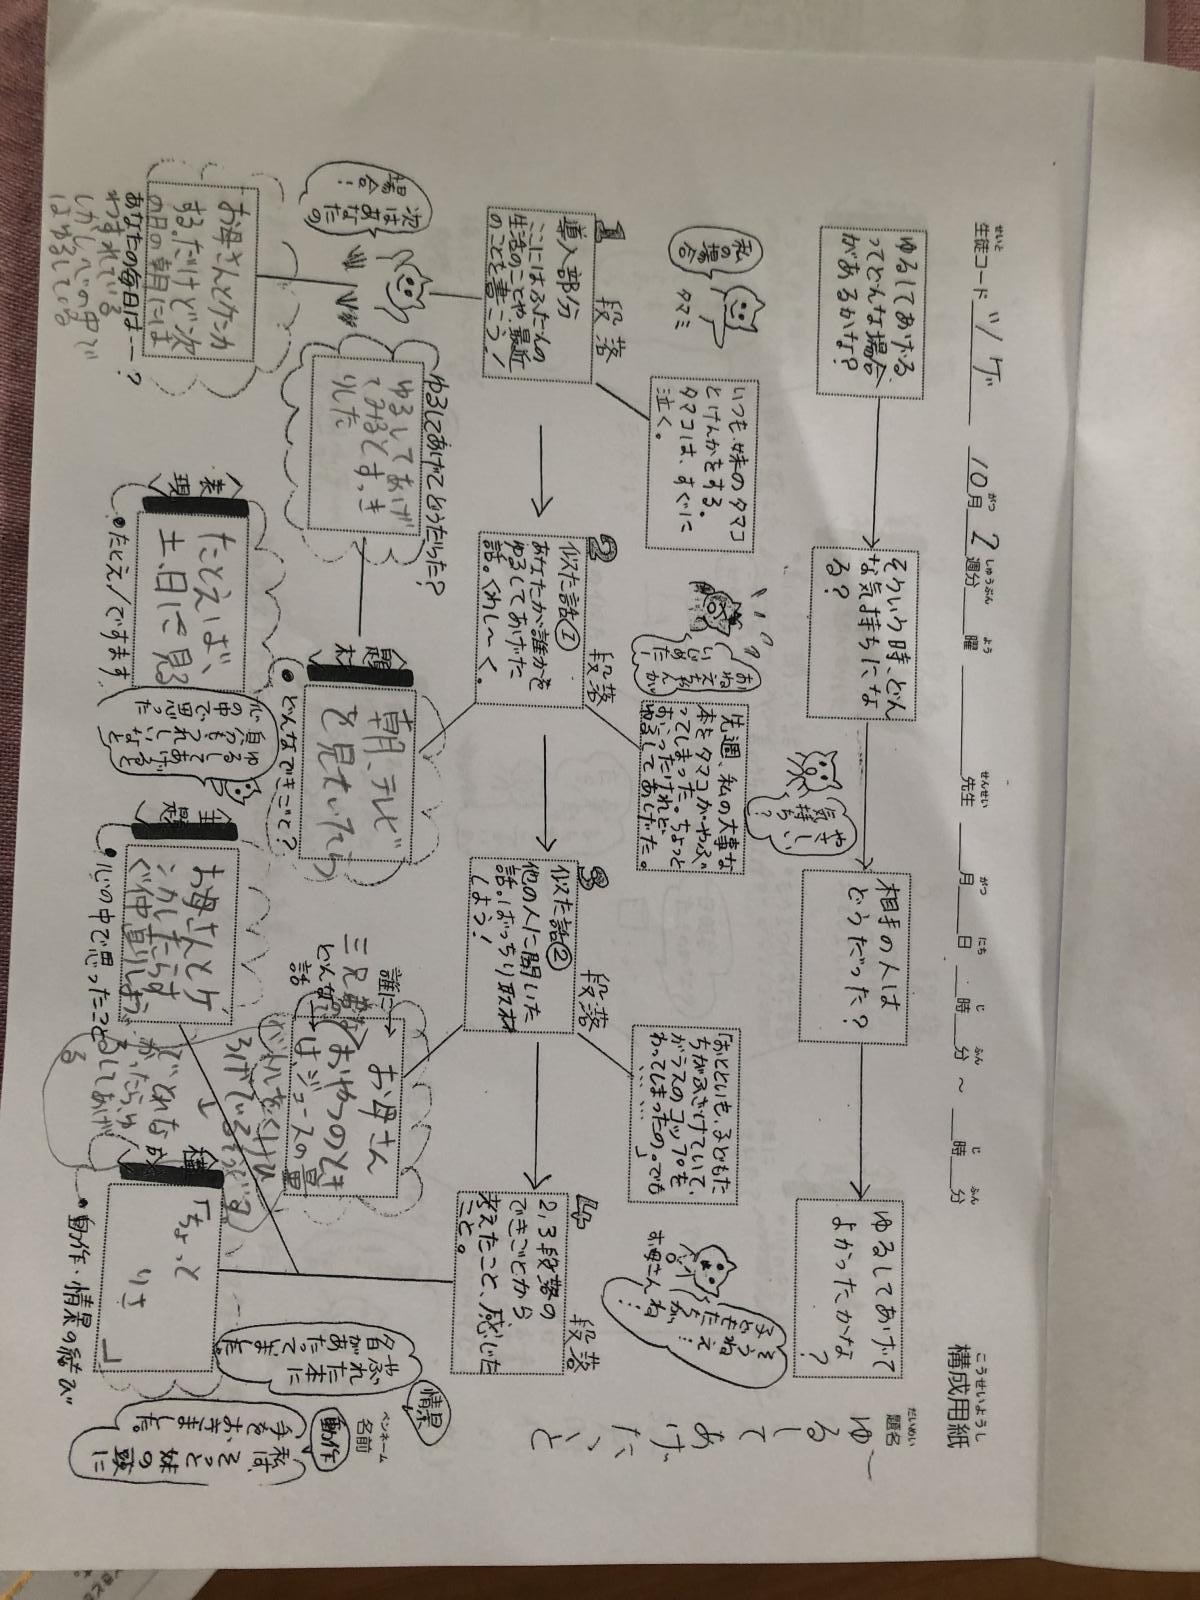 構成用紙
こうせいようし
題名
だいめい
ゆるして
あげたこと
ペンネーム
名前
生徒コード
せいと
ツゲ
10月2週分
がつ
しゅうぶん
曜
よう
先生
せんせい
月
がつ
日
にち
時
じ
分
ふん
～
時
じ
分
ふん
ゆるしてあげる、
ってどんな場合
があるかな？
そういう時、どん
な気持ちにな
る？
相手の人は
どうだった？
ゆるしてあげて
よかったかな
？
私
の場合
タマミ
やさしい
気持ち？
いつも、妹のタマコ
とけんかをする。
タマコは、すぐに
泣く。
先週、私の大事な
本をタマコがやぶ
ってしまった。ちょっと
おこったけれど、
ゆるしてあげた。
「おとといも、子どもた
ちがふざけていて、
ガラスのコップを
わってしまったの。でも
……」
お母さん
1
段落
導入部分
ここにはふだんの
生活のことや、最近
のことを書こう！
2
段落
似た話①
あなたが誰かを
ゆるしてあげた
話。くわし～く。
3
段落
似た話②
他の人に聞いた
話。ばっちり取材
しよう！
4
段落
2,3段落の
できごとから
考えたこと、感じた
こと。
次は
あなたの
場合！
ゆるしてあげてどうだった？
ゆるしてあげ
てみるとすっき
りした
題材
朝、テレビ
を見ていたら
●どんなできごと？
誰に→
お母さん
どんな
話→
おやつのとき
は、ジュースの量
お母さんとケンカ
する。だけど次
の日の朝には
わすれている
あなたの毎日は…？
しかし心の中で
はゆるしている
表現
たとえば、
土、日に見る
●たとえ/ですます
主題
お母さんとケ
ンカしたらす
ぐ仲直りしよう
●心の中で思ったこと
構成
「ちょっと
」
●動作・情景の結び
情景
やぶ
れた本に
夕日
があたって
いました。
動作
私は、
そっと妹の頭に
手をおきました。